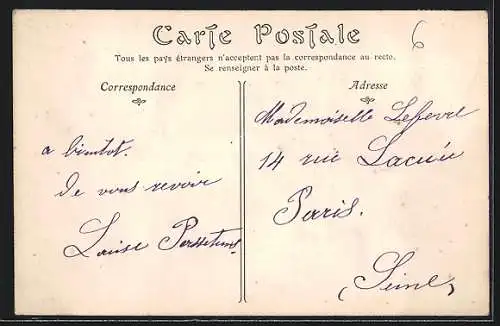 Carte Postale
6
Tous les pays étrangers n'acceptent pas la correspondance au recto.
Se renseigner à la poste.
Correspondance
Adresse
a bientot.
de vous revoir
Louise
Mademoiselle Lefevre
14 rue Lacuée
Paris.
(Seine)